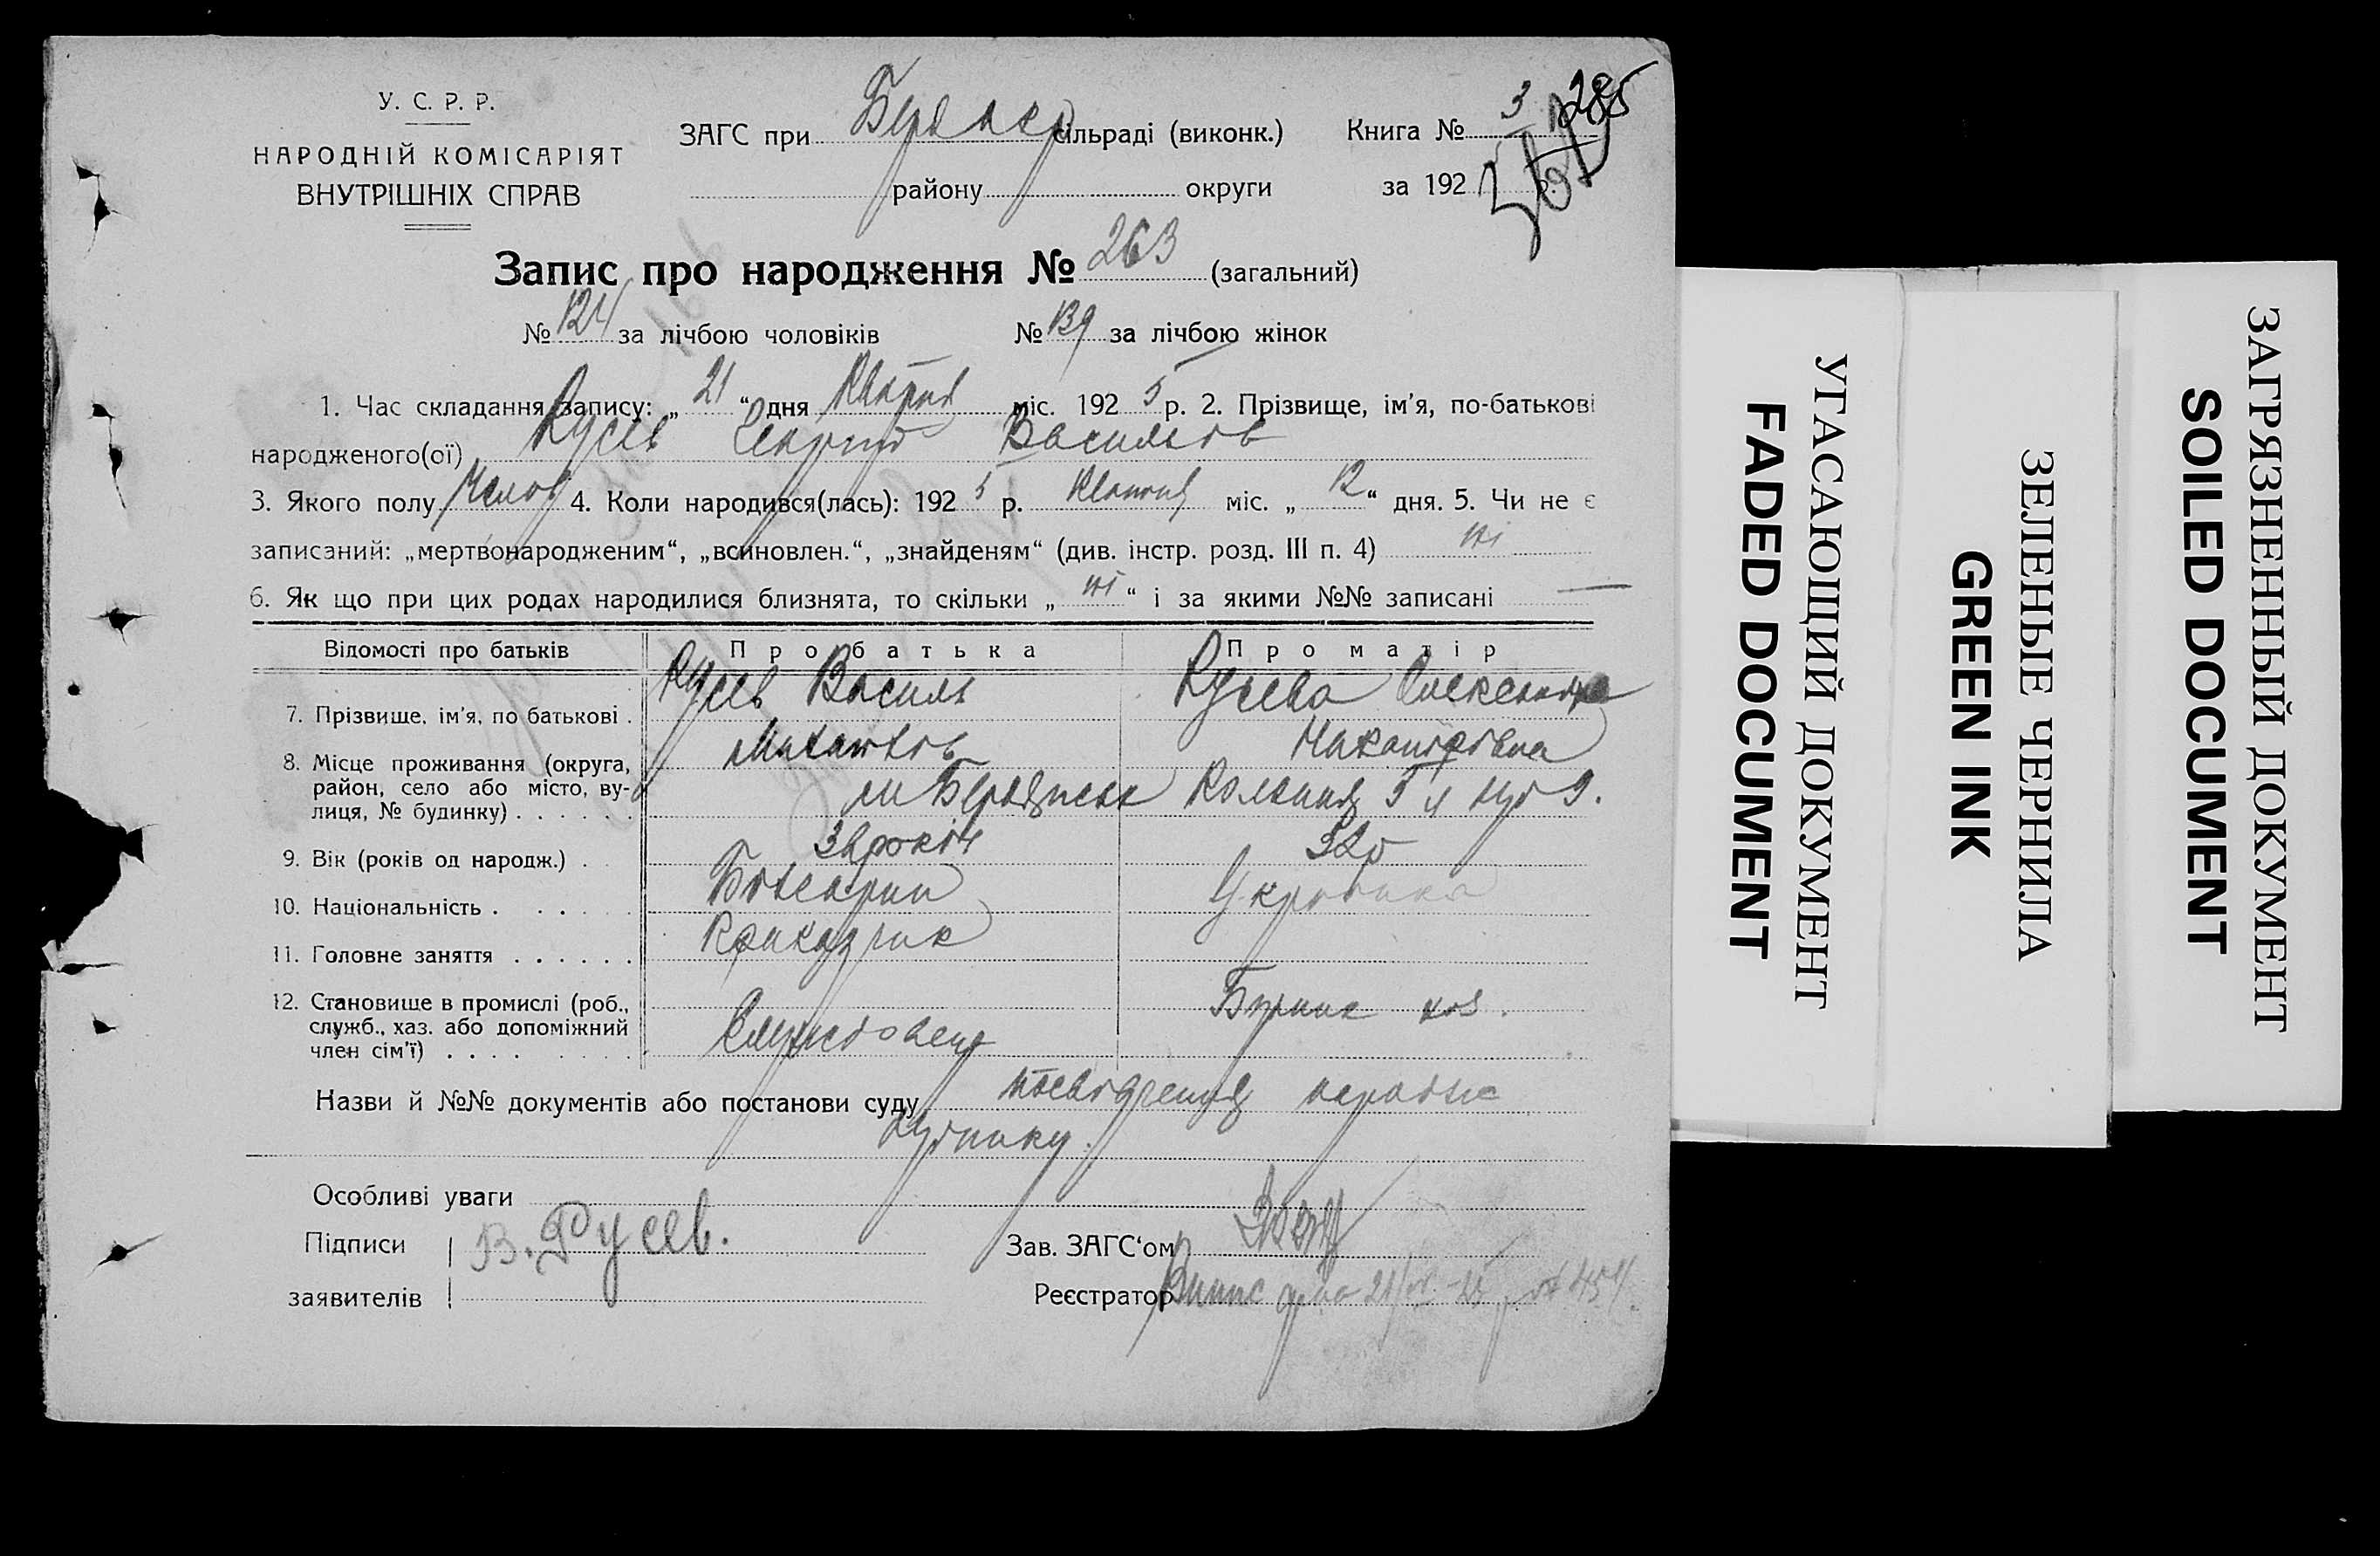 У. С. Р. Р.
НАРОДНІЙ КОМІСАРІЯТ
ВНУТРІШНІХ СПРАВ
ЗАГС при сільраді (виконк.)
району округи
Книга № 3 285
за 192 р.
Запис про народження № 263 (загальний)
№ 124 за лічбою чоловіків № 139 за лічбою жінок
1. Час складання запису: „ 21 “ дня міс. 192 5 р. 2. Прізвище, ім’я, по-батькові
народженого(ої) Русев Георгій Васильов
3. Якого полу Челов 4. Коли народився(лась): 192 5 р. міс. „ 12 “ дня. 5. Чи не є
записаний: „мертвонародженим“, „всиновлен.“, „знайденям“ (див. інстр. розд. III п. 4) ні
6. Як що при цих родах народилися близнята, то скільки „ ні “ і за якими №№ записані —
Відомості про батьків Про батька Про матір
7. Прізвище, ім’я, по батькові . Русев Василь Русева Олександра
8. Місце проживання (округа,
район, село або місто, ву-
лиця, № будинку) . . . . . .
м Бердянське Колонія 5 л 9.
9. Вік (років од народж.) . років 32 р
10. Національність . . . . . Болгарин Українка
11. Головне заняття . . . . . . Приказчик
12. Становище в промислі (роб.,
служб., хаз. або допоміжний
член сім’ї) . . . . . . . .
Службовець
Назви й №№ документів або постанови суду посвідчення
будинку.
Особливі уваги
Підписи В. Русев. Зав. ЗАГС‘ом
заявителів Реєстратор
УГАСАЮЩИЙ ДОКУМЕНТ
FADED DOCUMENT
ЗЕЛЕНЫЕ ЧЕРНИЛА
GREEN INK
ЗАГРЯЗНЕННЫЙ ДОКУМЕНТ
SOILED DOCUMENT